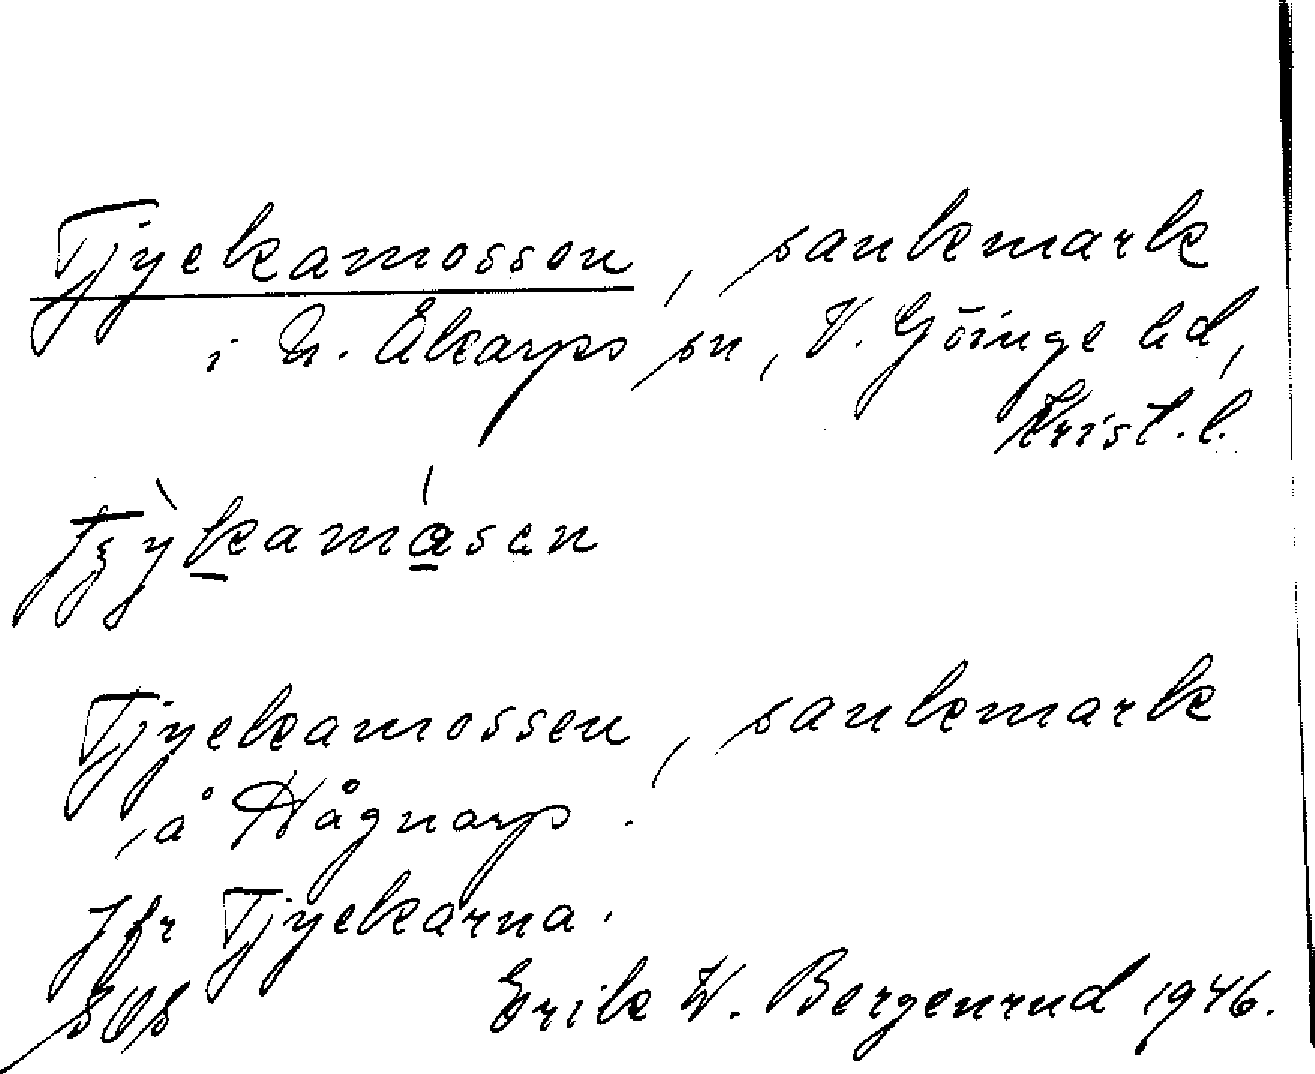 Tjyckamossen, sankmark
i N. Åkarps sn, V. Göinge hd,
Krist. l.
Tjyckamossen, sankmark
å Hågnarp.
Jfr Tjyckarna.
Erik W. Bergenrud 1946.